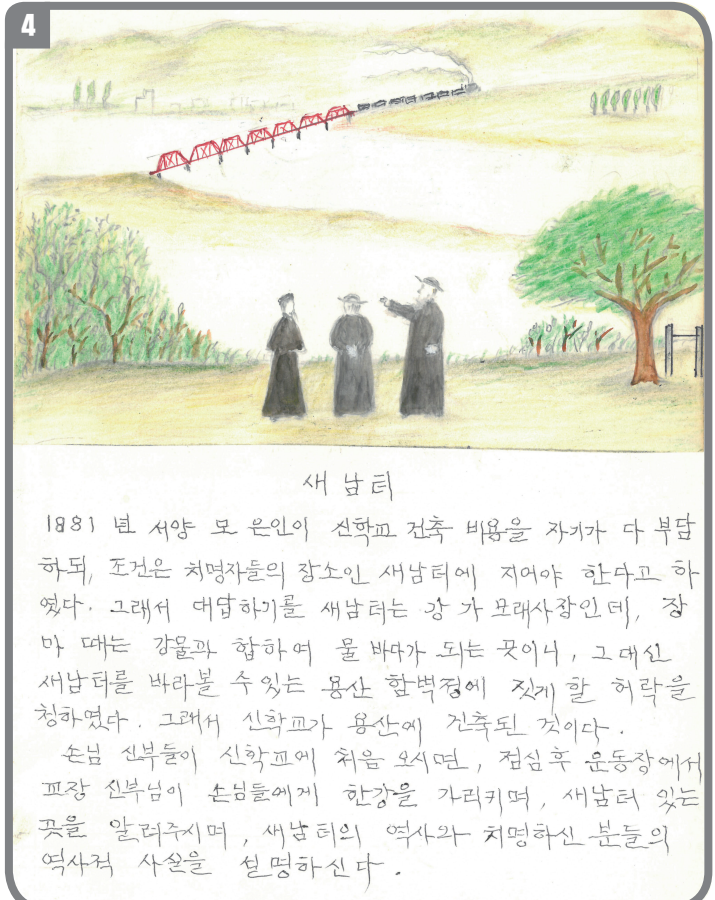 4
새남터
1881 년 서양 모 은인이 신학교 건축 비용을 자기가 다 부담
하되, 조건은 치명자들의 장소인 새남터에 지어야 한다고 하
였다. 그래서 대답하기를 새남터는 강 가 모래사장인데, 장
마 때는 강물과 합하여 물 바다가 되는 곳이니, 그대신
새남터를 바라볼 수 있는 용산 함벽정에 짓게 할 허락을
청하였다. 그래서 신학교가 용산에 건축된 것이다.
손님 신부들이 신학교에 처음 오시면, 점심후 운동장에서
교장 신부님이 손님들에게 한강을 가리키며, 새남터 있는
곳을 알려주시며, 새남터의 역사와 치명하신 분들의
역사적 사실을 설명하신다.